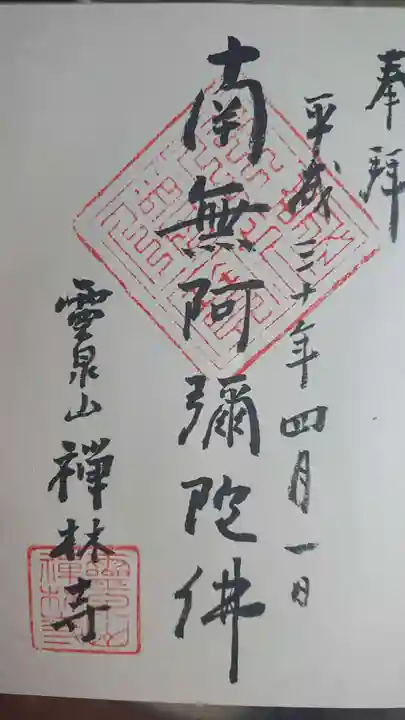 奉拜
平成三十年四月一日
南無阿彌陀佛
靈泉山禅林寺